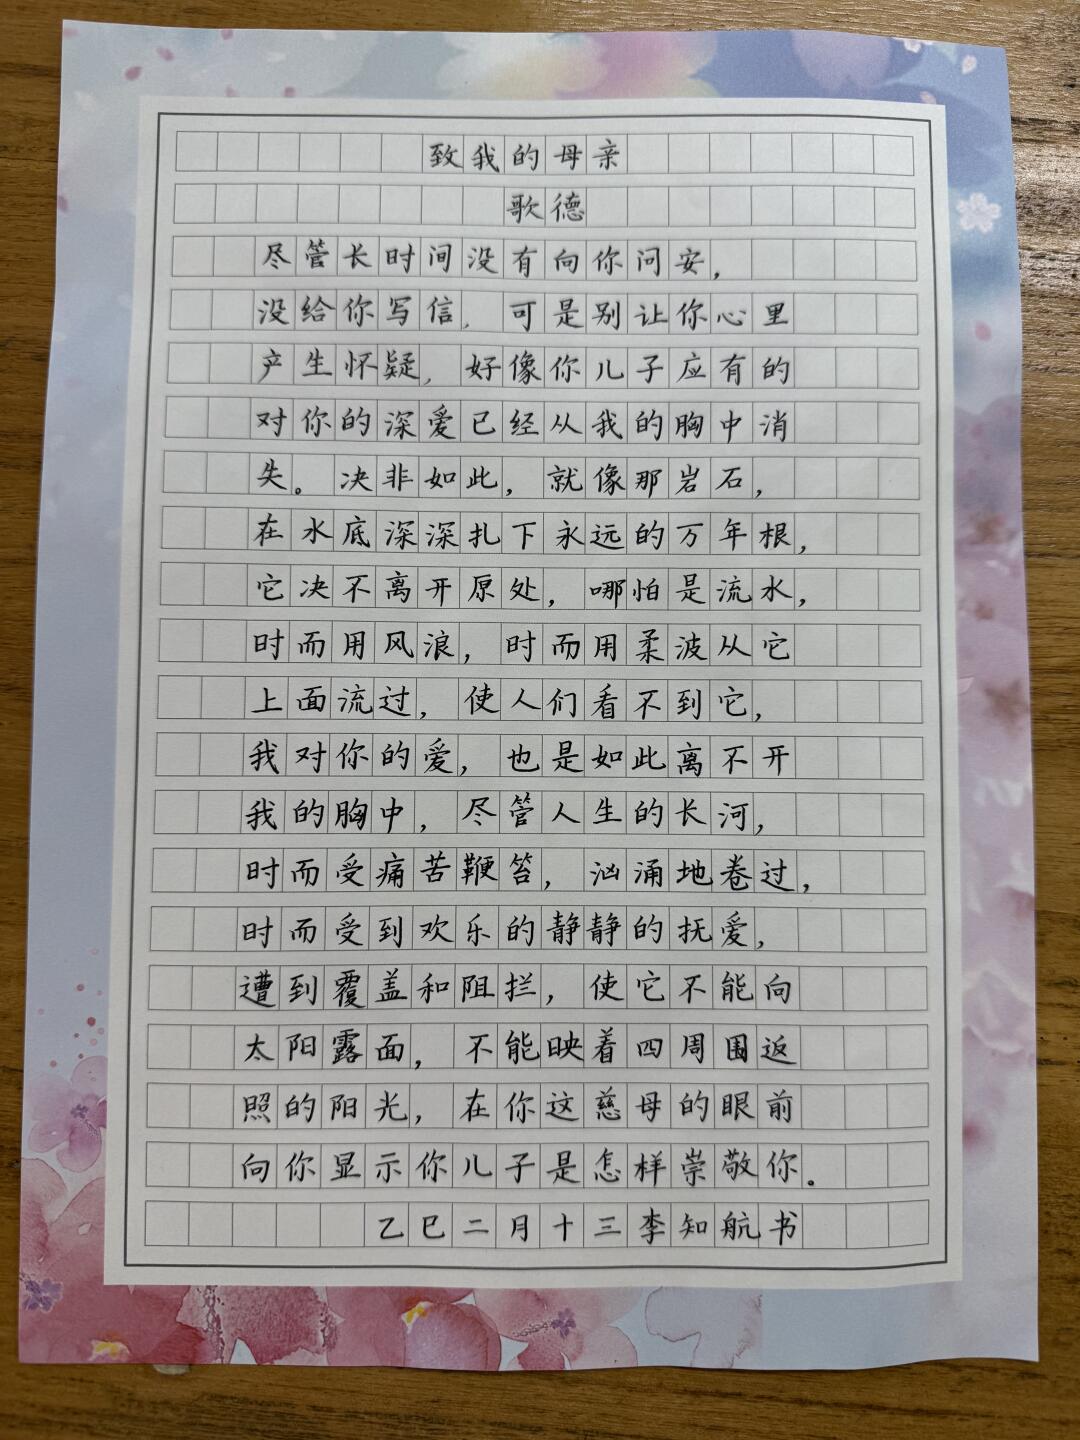 致我的母亲
歌德
尽管长时间没有向你问安，
没给你写信，可是别让你心里
产生怀疑，好像你儿子应有的
对你的深爱已经从我的胸中消
失。决非如此，就像那岩石，
在水底深深扎下永远的万年根，
它决不离开原处，哪怕是流水，
时而用风浪，时而用柔波从它
上面流过，使人们看不到它，
我对你的爱，也是如此离不开
我的胸中，尽管人生的长河，
时而受痛苦鞭笞，汹涌地卷过，
时而受到欢乐的静静的抚爱，
遭到覆盖和阻拦，使它不能向
太阳露面，不能映着四周围返
照的阳光，在你这慈母的眼前
向你显示你儿子是怎样崇敬你。
乙巳二月十三李知航书